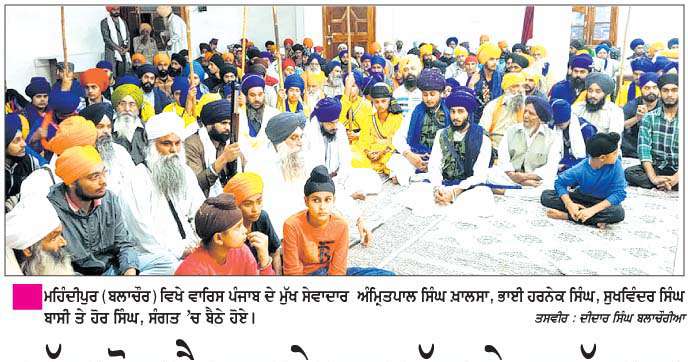 ਮਹਿੰਦੀਪੁਰ (ਬਲਾਚੌਰ) ਵਿਖੇ ਵਾਰਿਸ ਪੰਜਾਬ ਦੇ ਮੁੱਖ ਸੇਵਾਦਾਰ ਅੰਮ੍ਰਿਤਪਾਲ ਸਿੰਘ ਖ਼ਾਲਸਾ, ਭਾਈ ਹਰਨੇਕ ਸਿੰਘ, ਸੁਖਵਿੰਦਰ ਸਿੰਘ
ਬਾਸੀ ਤੇ ਹੋਰ ਸਿੰਘ, ਸੰਗਤ 'ਚ ਬੈਠੇ ਹੋਏ। ਤਸਵੀਰ : ਦੀਦਾਰ ਸਿੰਘ ਬਲਾਚੌਰੀਆ